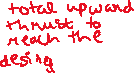 total upward
thrust to
reach the
desing